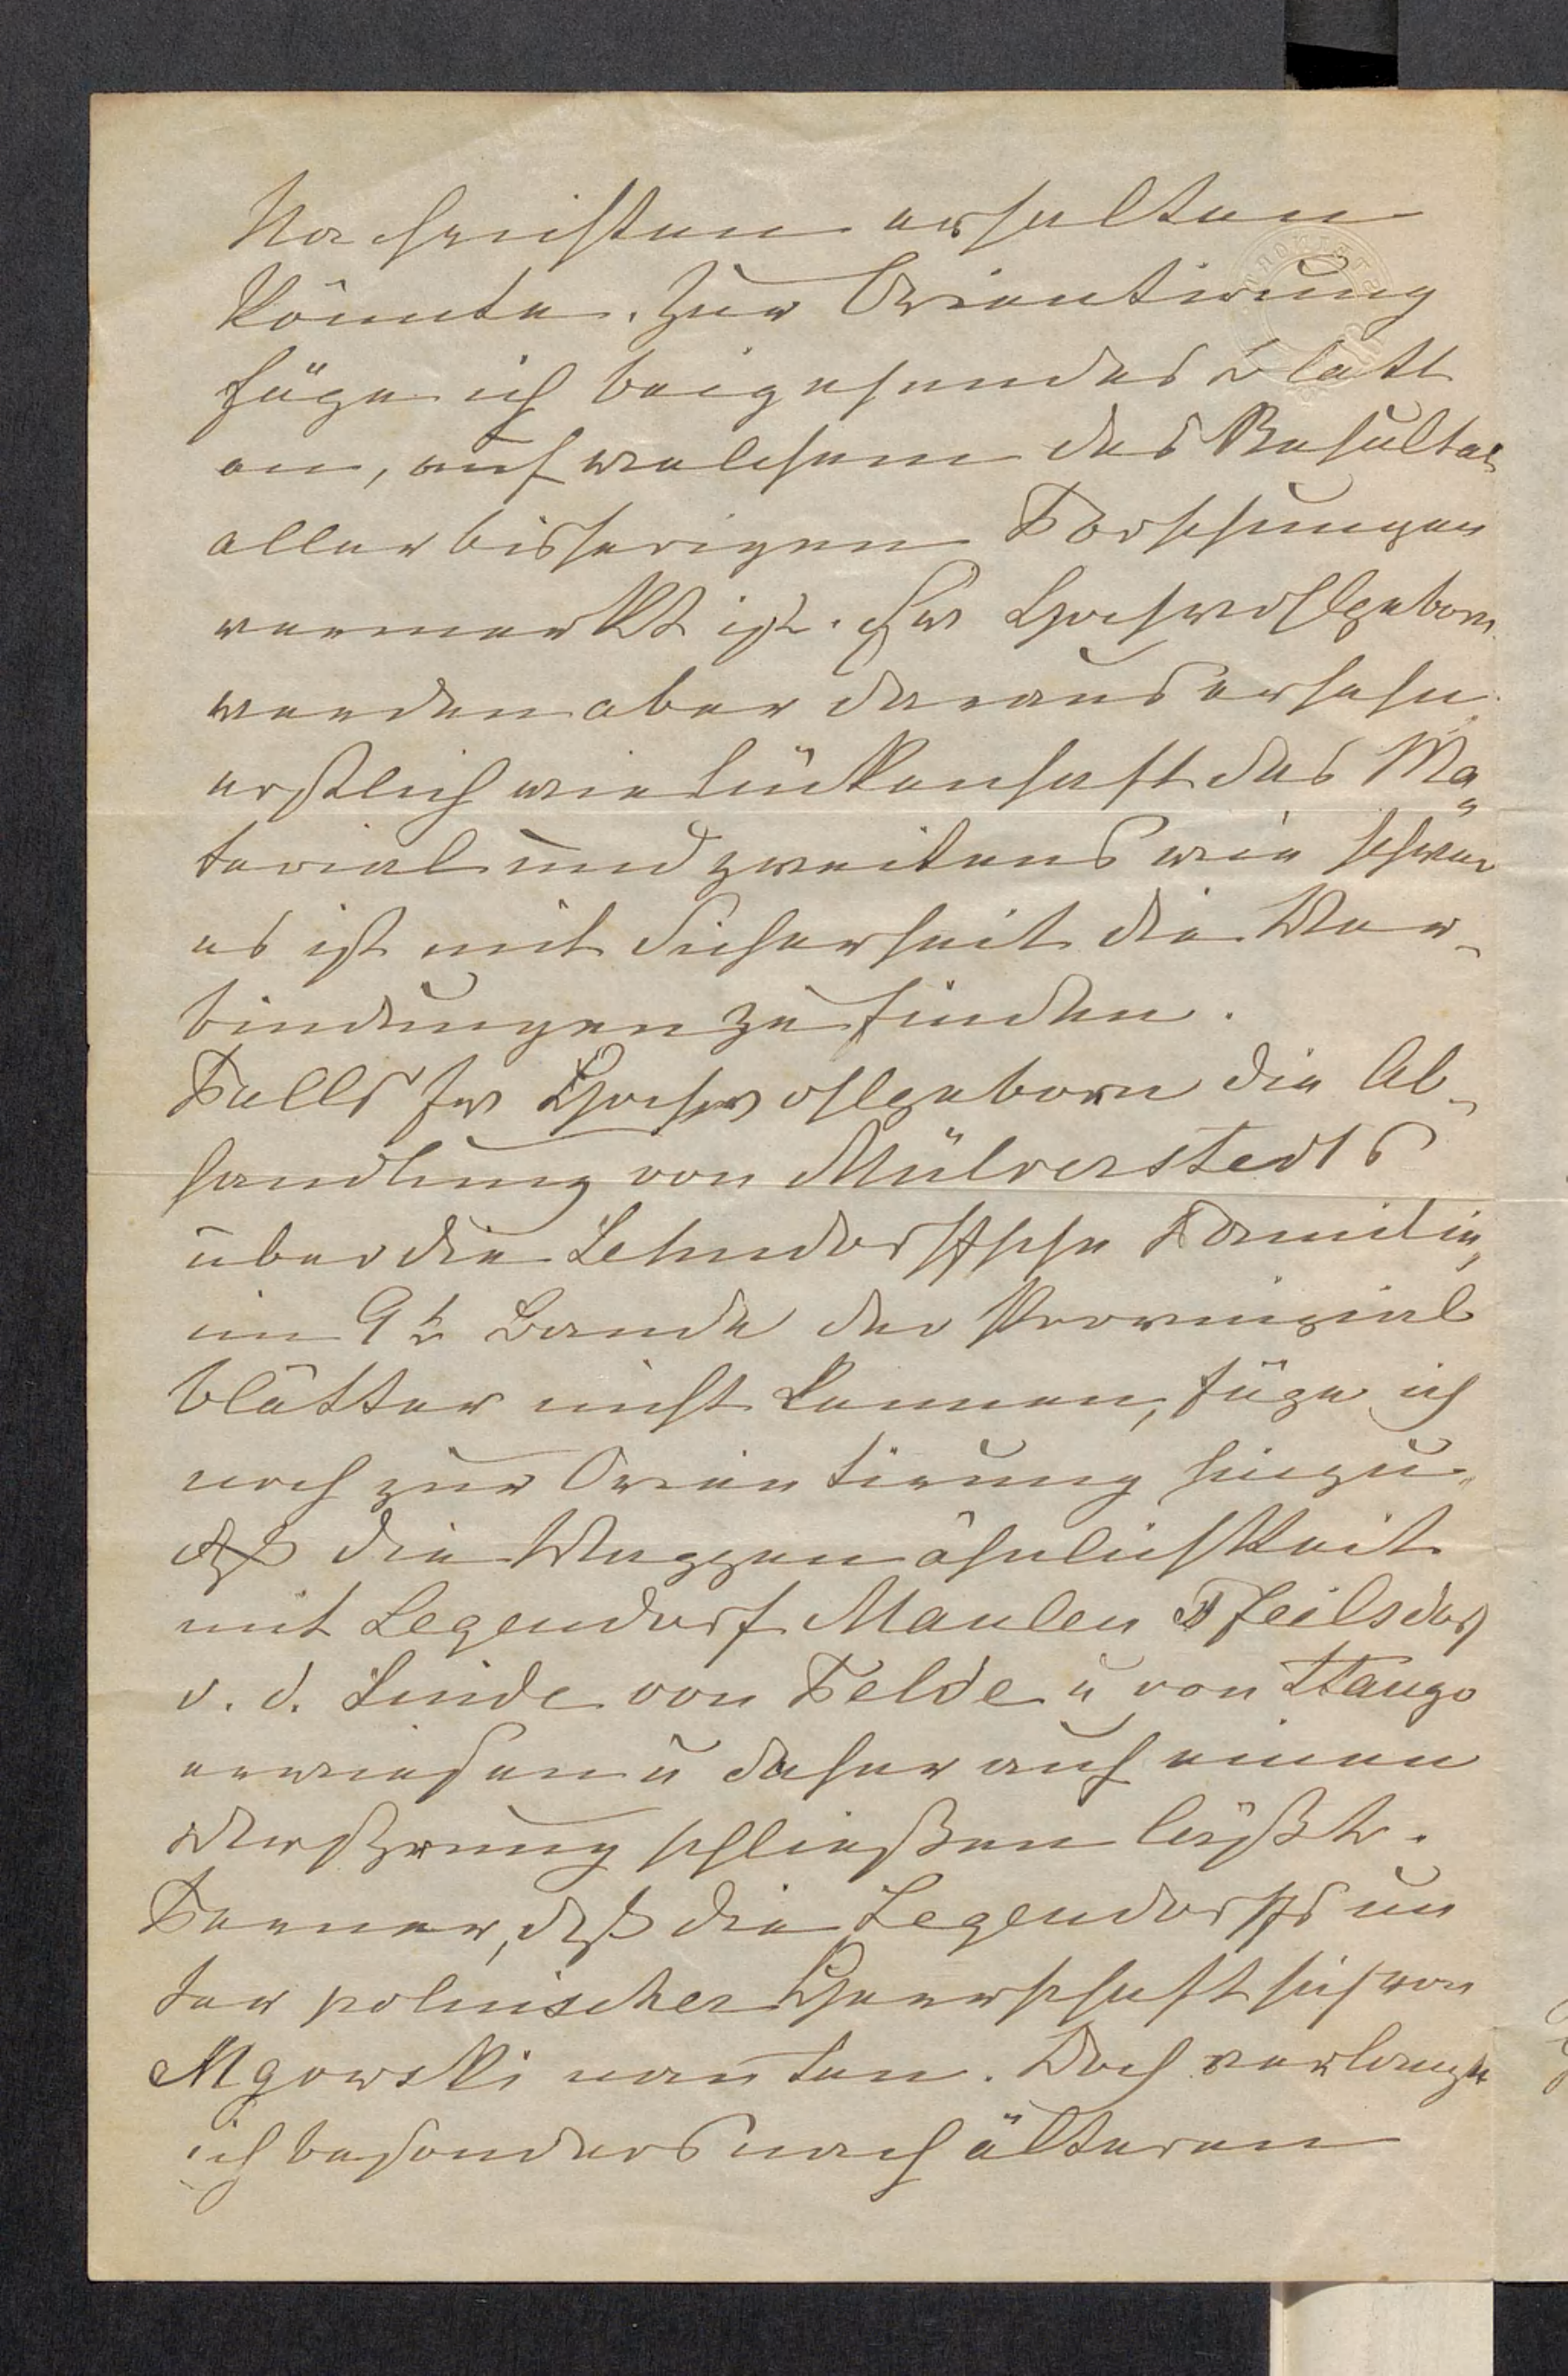 Nachrichten erhalten
könnte. Zur Orientirung
füge ich beigehendes Blatt
an, auf welchem das Resultat
aller bisherigen Forschungen
vermerkt ist. Ew Hochwohlgeborn
werden aber daraus ersehn
erstlich wie lückenhaft das Ma„
terial und zweitens wie schwer
es ist mit Sicherheit die Ver-
bindungen zu finden.
Falls Ew Hochwohlgeborn die Ab-
handlung von Mülverstedts
über die Lehndorffsche Familie,
im 9t Bande der Provinzial
blätter nicht kennen, füge ich
noch zur Orientirung hinzu,
daß die Wappenähnlichkeit
mit Legendorf Maulen Pfeilsdorf
v. d. Linde von Felde u von Stango
erwiesen u daher auf einen
schließen läßt.
Ferner, daß die Legendorffs un
ter polnischer Herrschaft sich von
Mgowski nanten. Doch verlange
ich besonders nach älteren